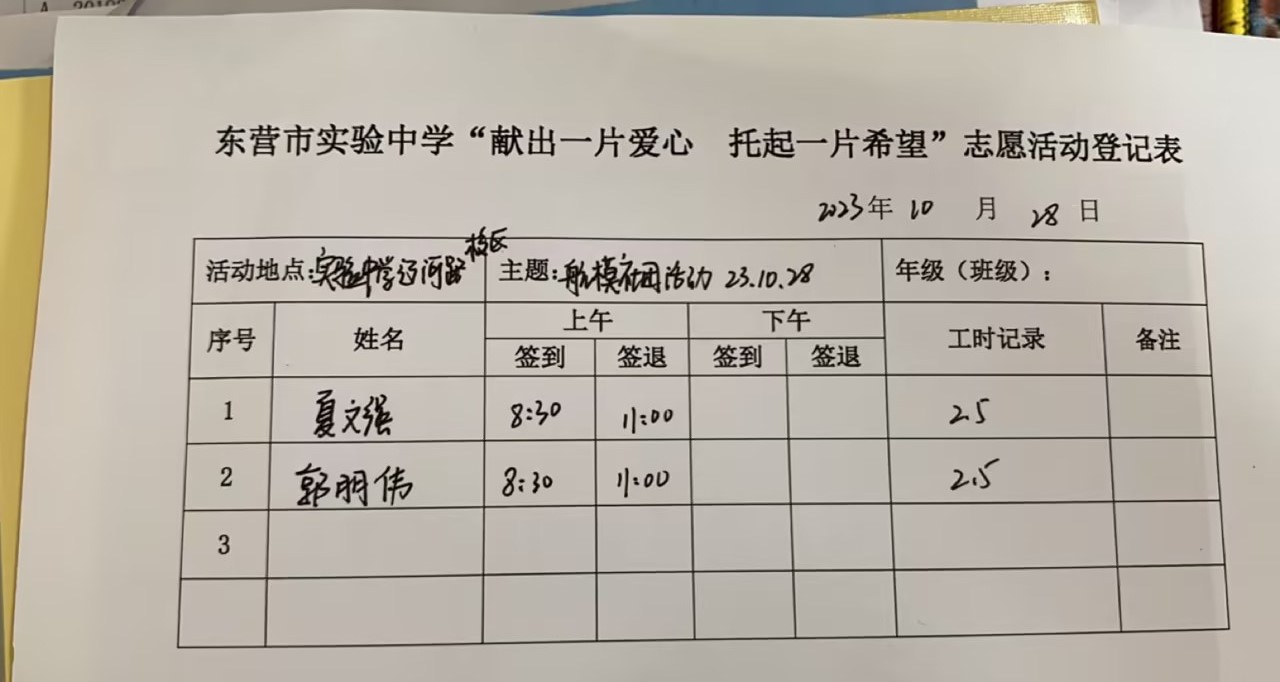 东营市实验中学“献出一片爱心 托起一片希望”志愿活动登记表
2023年 10 月 28 日
活动地点:实验中学辽河路校区 主题:航模社团活动 23.10.28 年级（班级）:
序号 姓名 上午 下午 工时记录 备注
签到 签退 签到 签退
1 夏文强 8:30 11:00 2.5
2 郭明伟 8:30 11:00 2.5
3